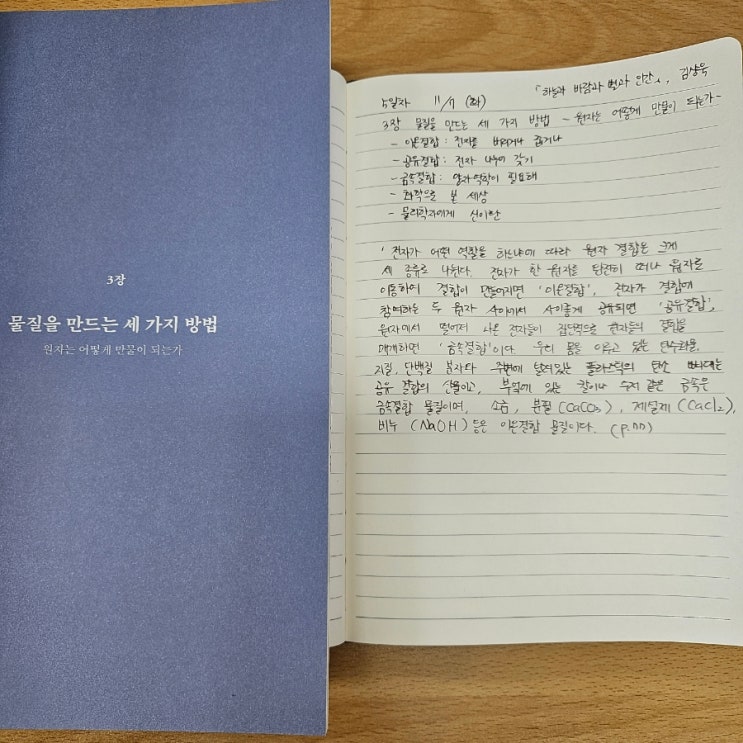 3장
물질을 만드는 세 가지 방법
원자는 어떻게 만물이 되는가
「하늘과 바람과 별과 인간」, 김상욱
5일차 11/7 (화)
3장 물질을 만드는 세 가지 방법 - 원자는 어떻게 만물이 되는가-
- 이온결합 : 전자를 버리거나 줍거나
- 공유결합 : 전자 나누어 갖기
- 금속결합 : 양자역학이 필요해
- 화학으로 본 세상
- 물리학자에게 신이란
' 전자가 어떤 역할을 하느냐에 따라 원자 결합은 크게
세 종류로 나뉜다. 전자가 한 원자를 완전히 떠나 원자로
이동하여 결합이 만들어지면 '이온결합', 전자가 결합에
참여하는 두 원자 사이에서 사이좋게 공유되면 '공유결합',
원자에서 떨어져 나온 전자들이 집단적으로 원자들의 결합을
매개하면 '금속결합'이다. 우리 몸을 이루고 있는 탄수화물,
지질, 단백질 분자나 주변에 널려있는 플라스틱의 탄소 뼈대는
공유 결합의 산물이고, 부엌에 있는 칼이나 수저 같은 금속은
금속결합 물질이며, 소금, 분필 (CaCO₃), 제설제 (CaCl₂),
비누 (NaOH) 등은 이온결합 물질이다. (p.77)